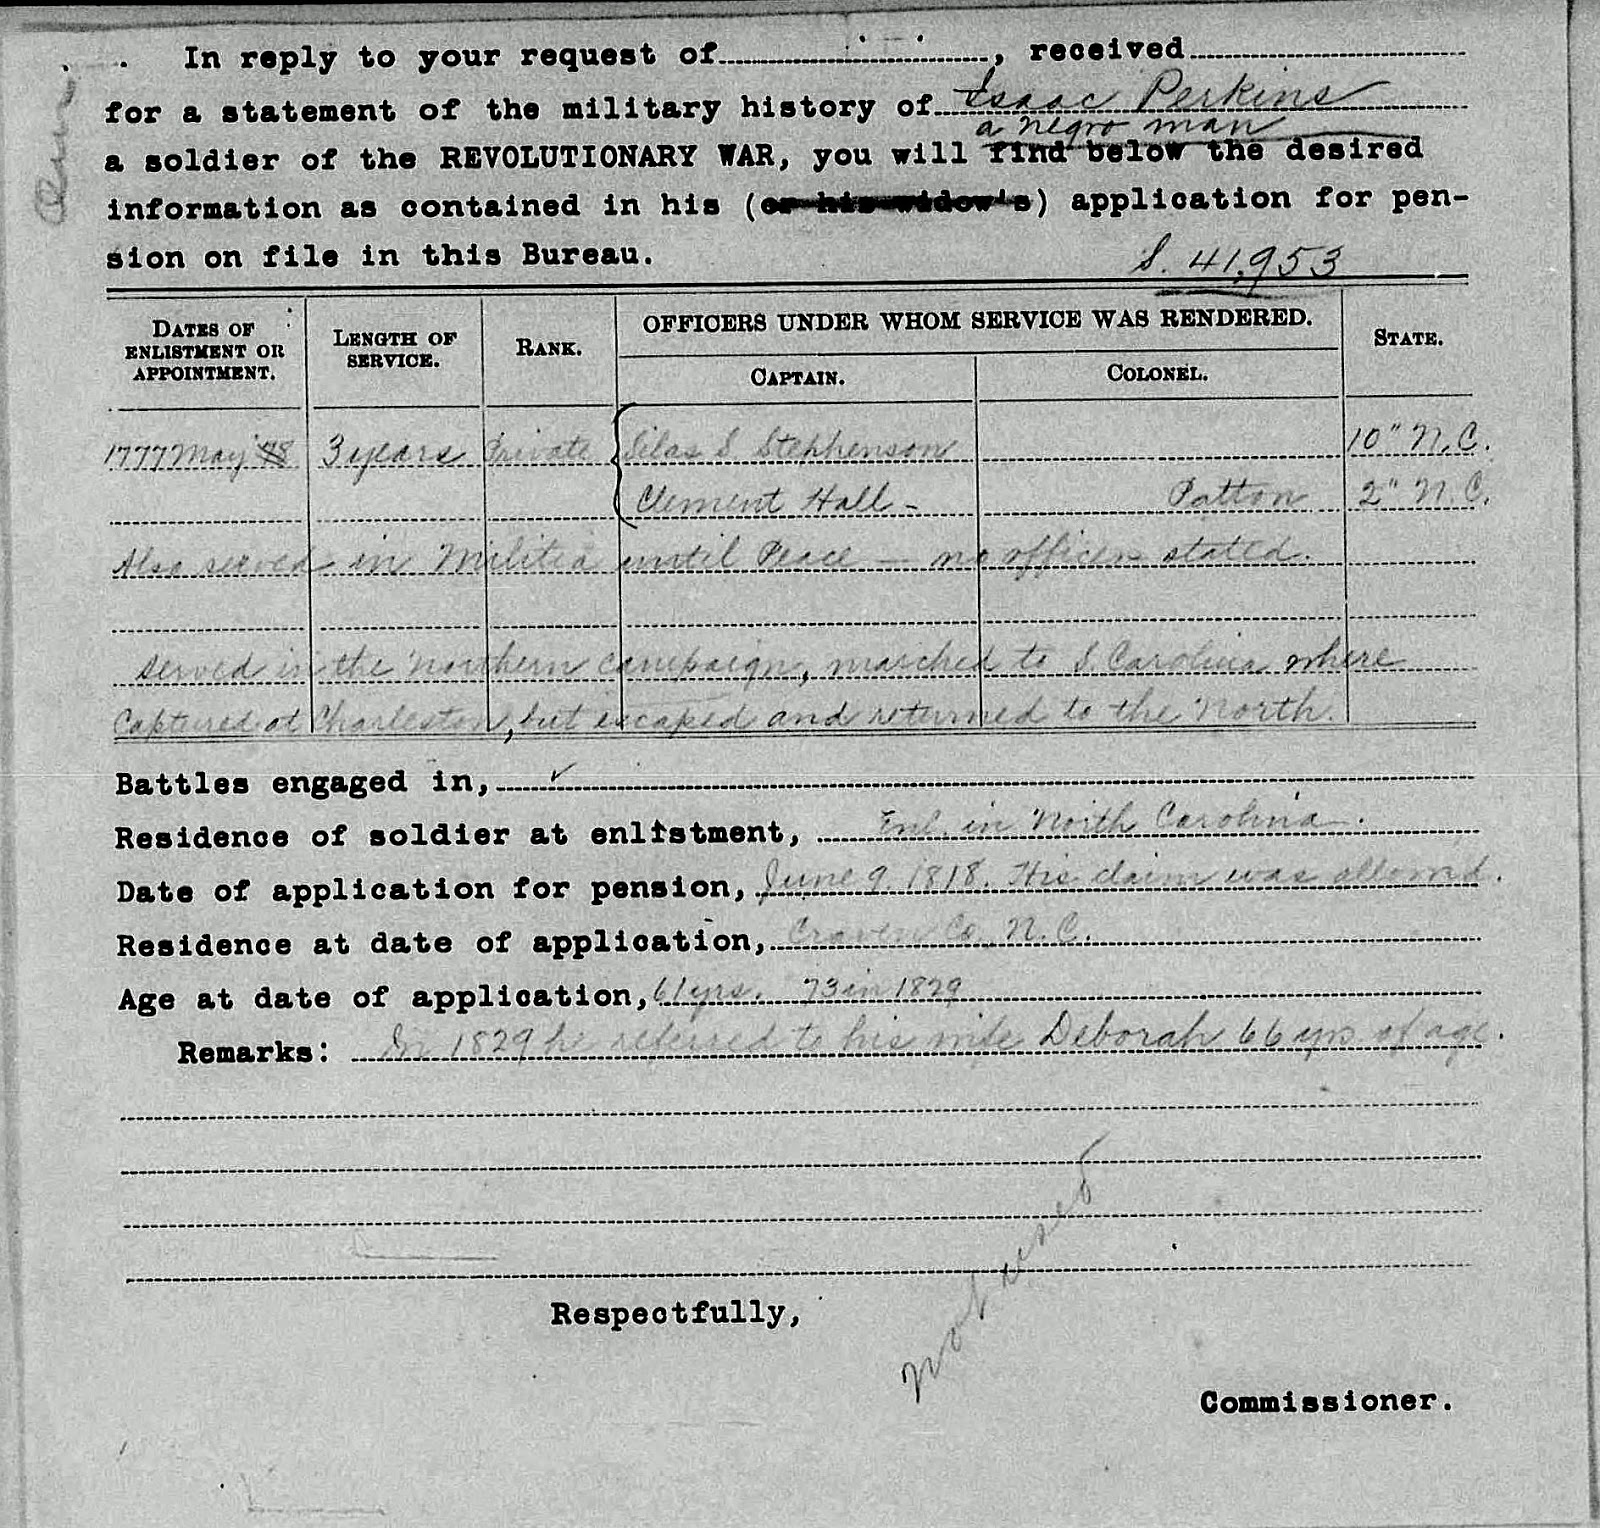 In reply to your request of , received
for a statement of the military history of Isaac Perkins
a negro man
a soldier of the REVOLUTIONARY WAR, you will find below the desired
information as contained in his (or his widow's) application for pen-
sion on file in this Bureau.
S. 41,953
DATES OF ENLISTMENT OR APPOINTMENT. LENGTH OF SERVICE. RANK. OFFICERS UNDER WHOM SERVICE WAS RENDERED. STATE.
CAPTAIN. COLONEL.
1777 May 78 3 years Private Silas S Stephenson 10" N.C.
Clement Hall - Patton 2" N.C.
Also served in Militia until Peace - no officers stated.
served in the Northern campaign, marched to S. Carolina where
captured at Charleston, but escaped and returned to the North.
Battles engaged in,
Residence of soldier at enlistment, Enl. in North Carolina.
Date of application for pension, June 9, 1818. His claim was allowed.
Residence at date of application, Craven Co. N.C.
Age at date of application, 61 yrs. 73 in 1829
Remarks: In 1829 he referred to his wife Deborah 66 yrs of age.
not used
Respectfully,
Commissioner.